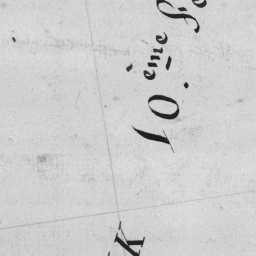 10ème
K